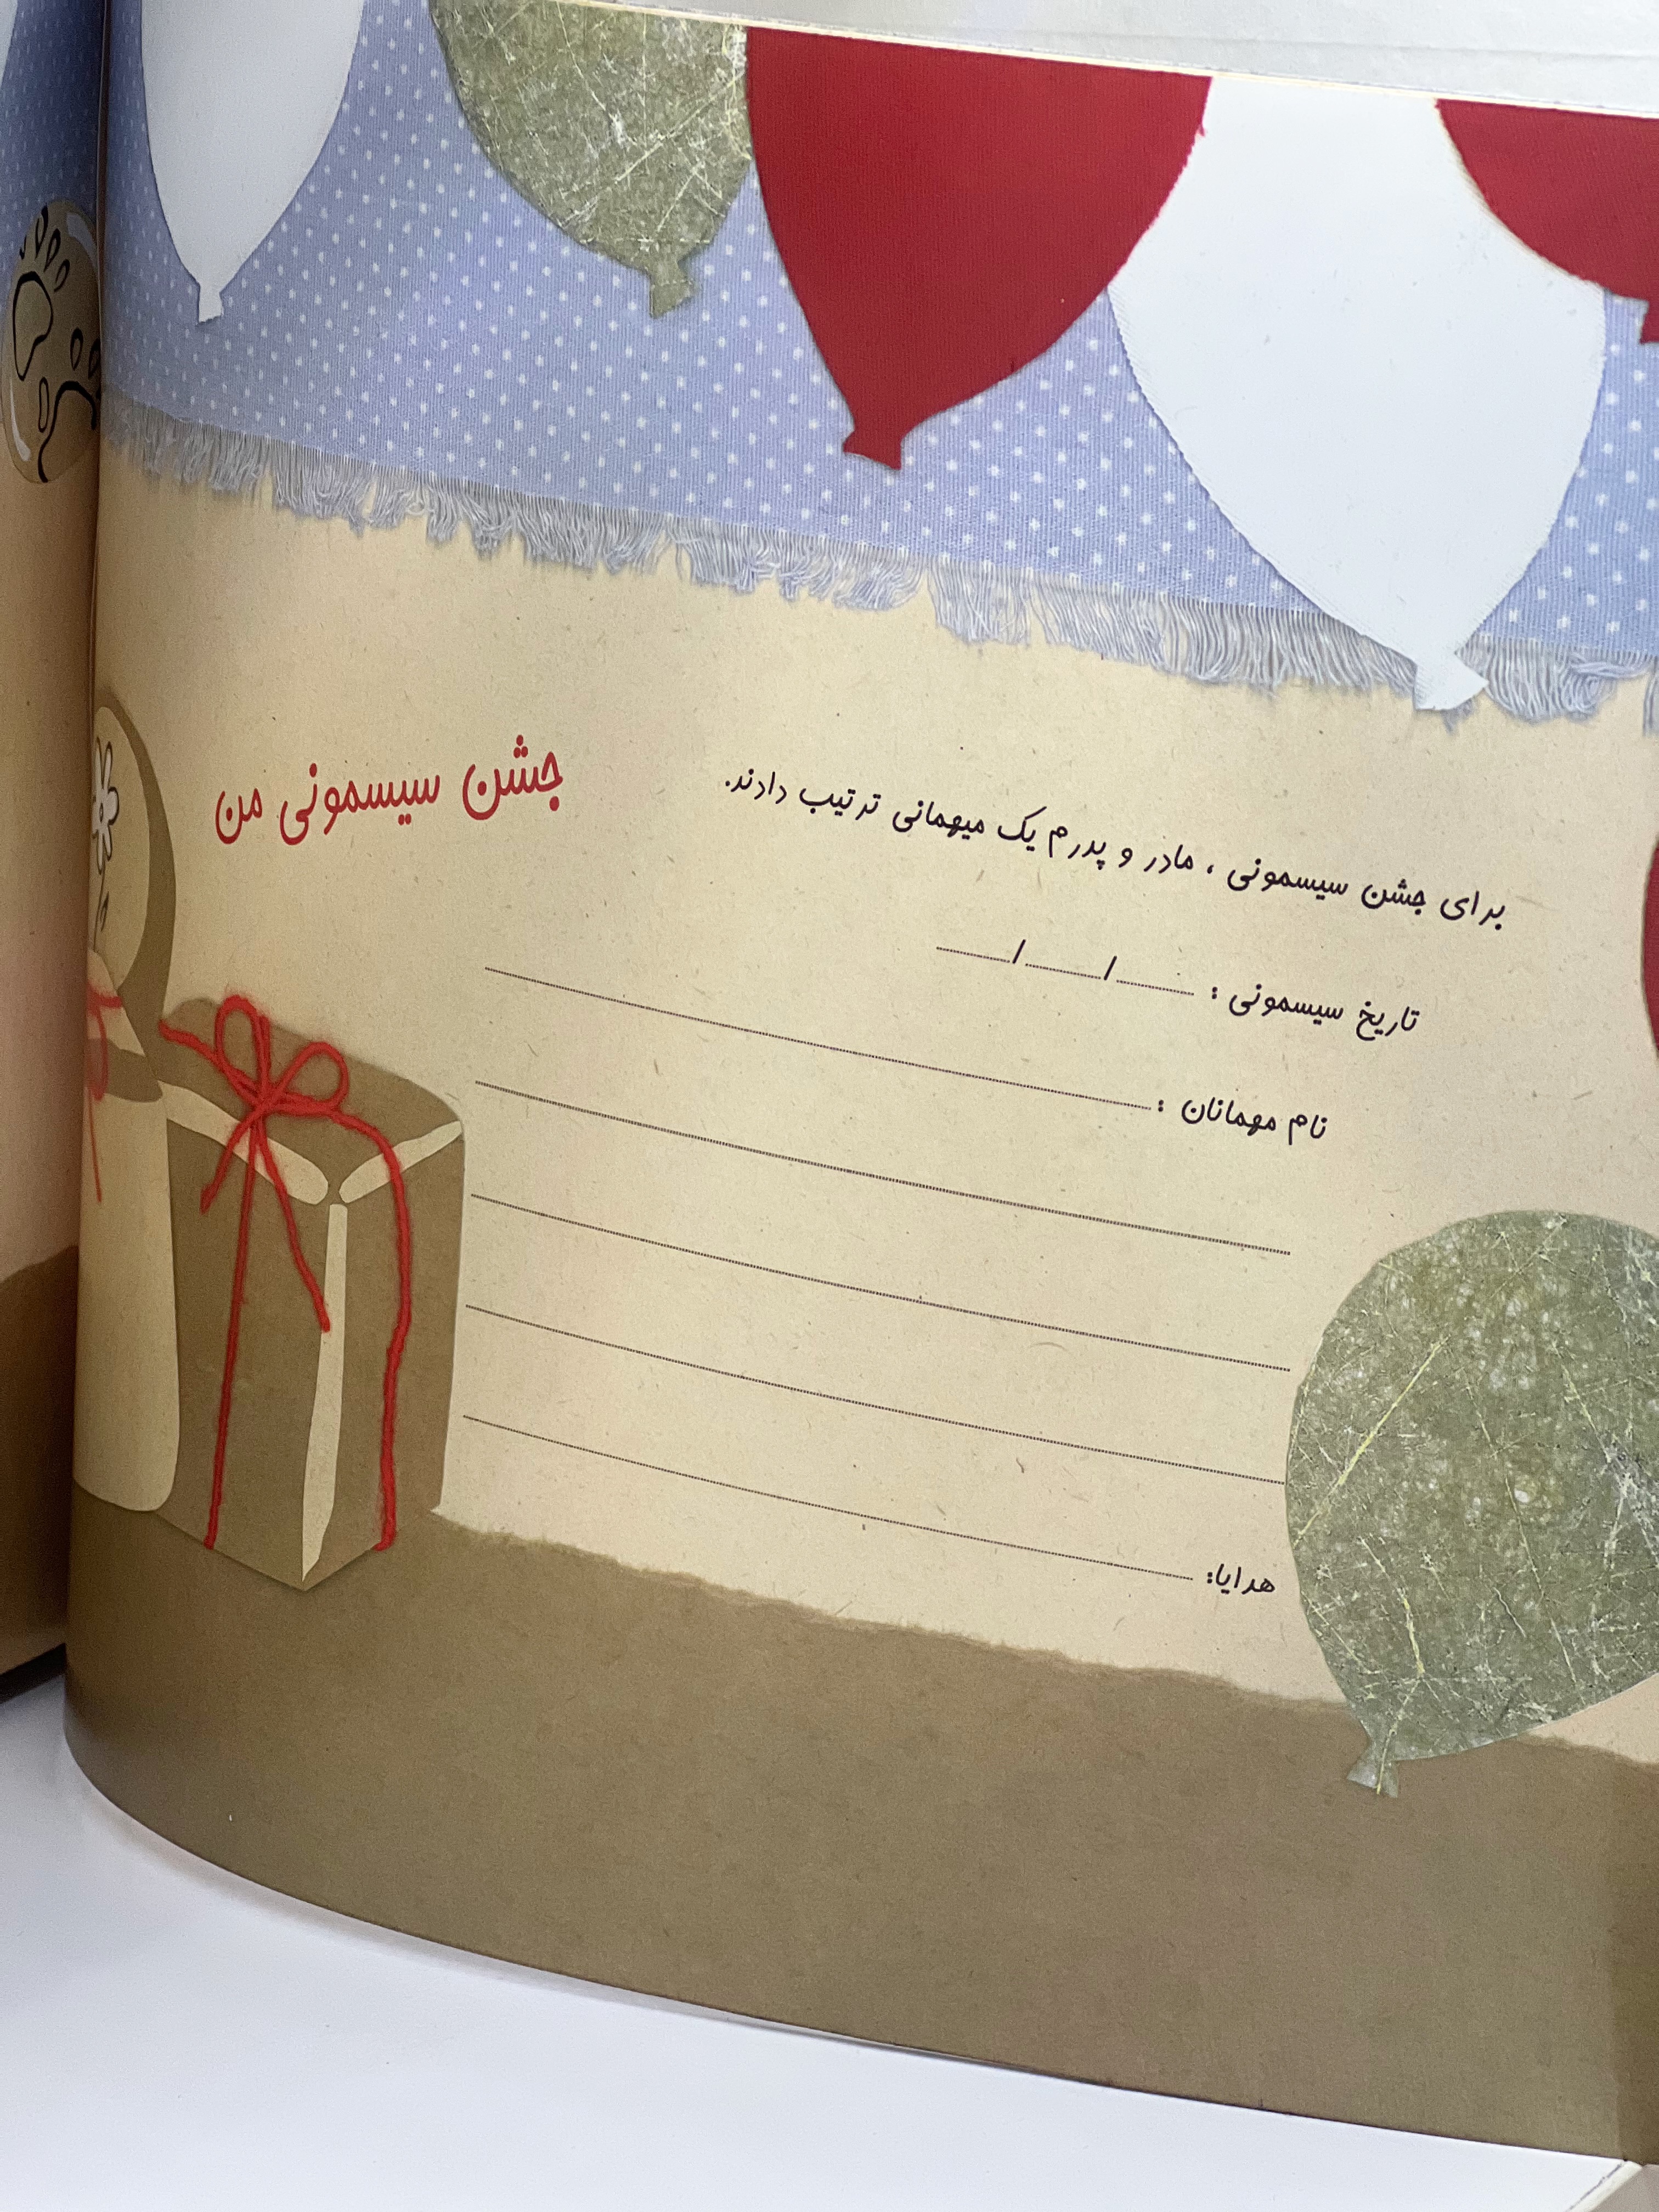 جشن سیسمونی من
برای جشن سیسمونی ، مادر و پدرم یک میهمانی ترتیب دادند.
تاریخ سیسمونی : ......../......../........
نام مهمانان :
هدایا: